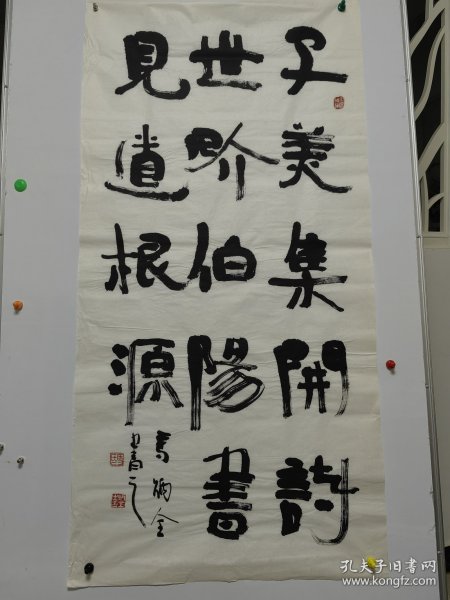 子美集開詩
世畍伯陽書
見道根源
孔夫子旧书网
www.kongfz.com